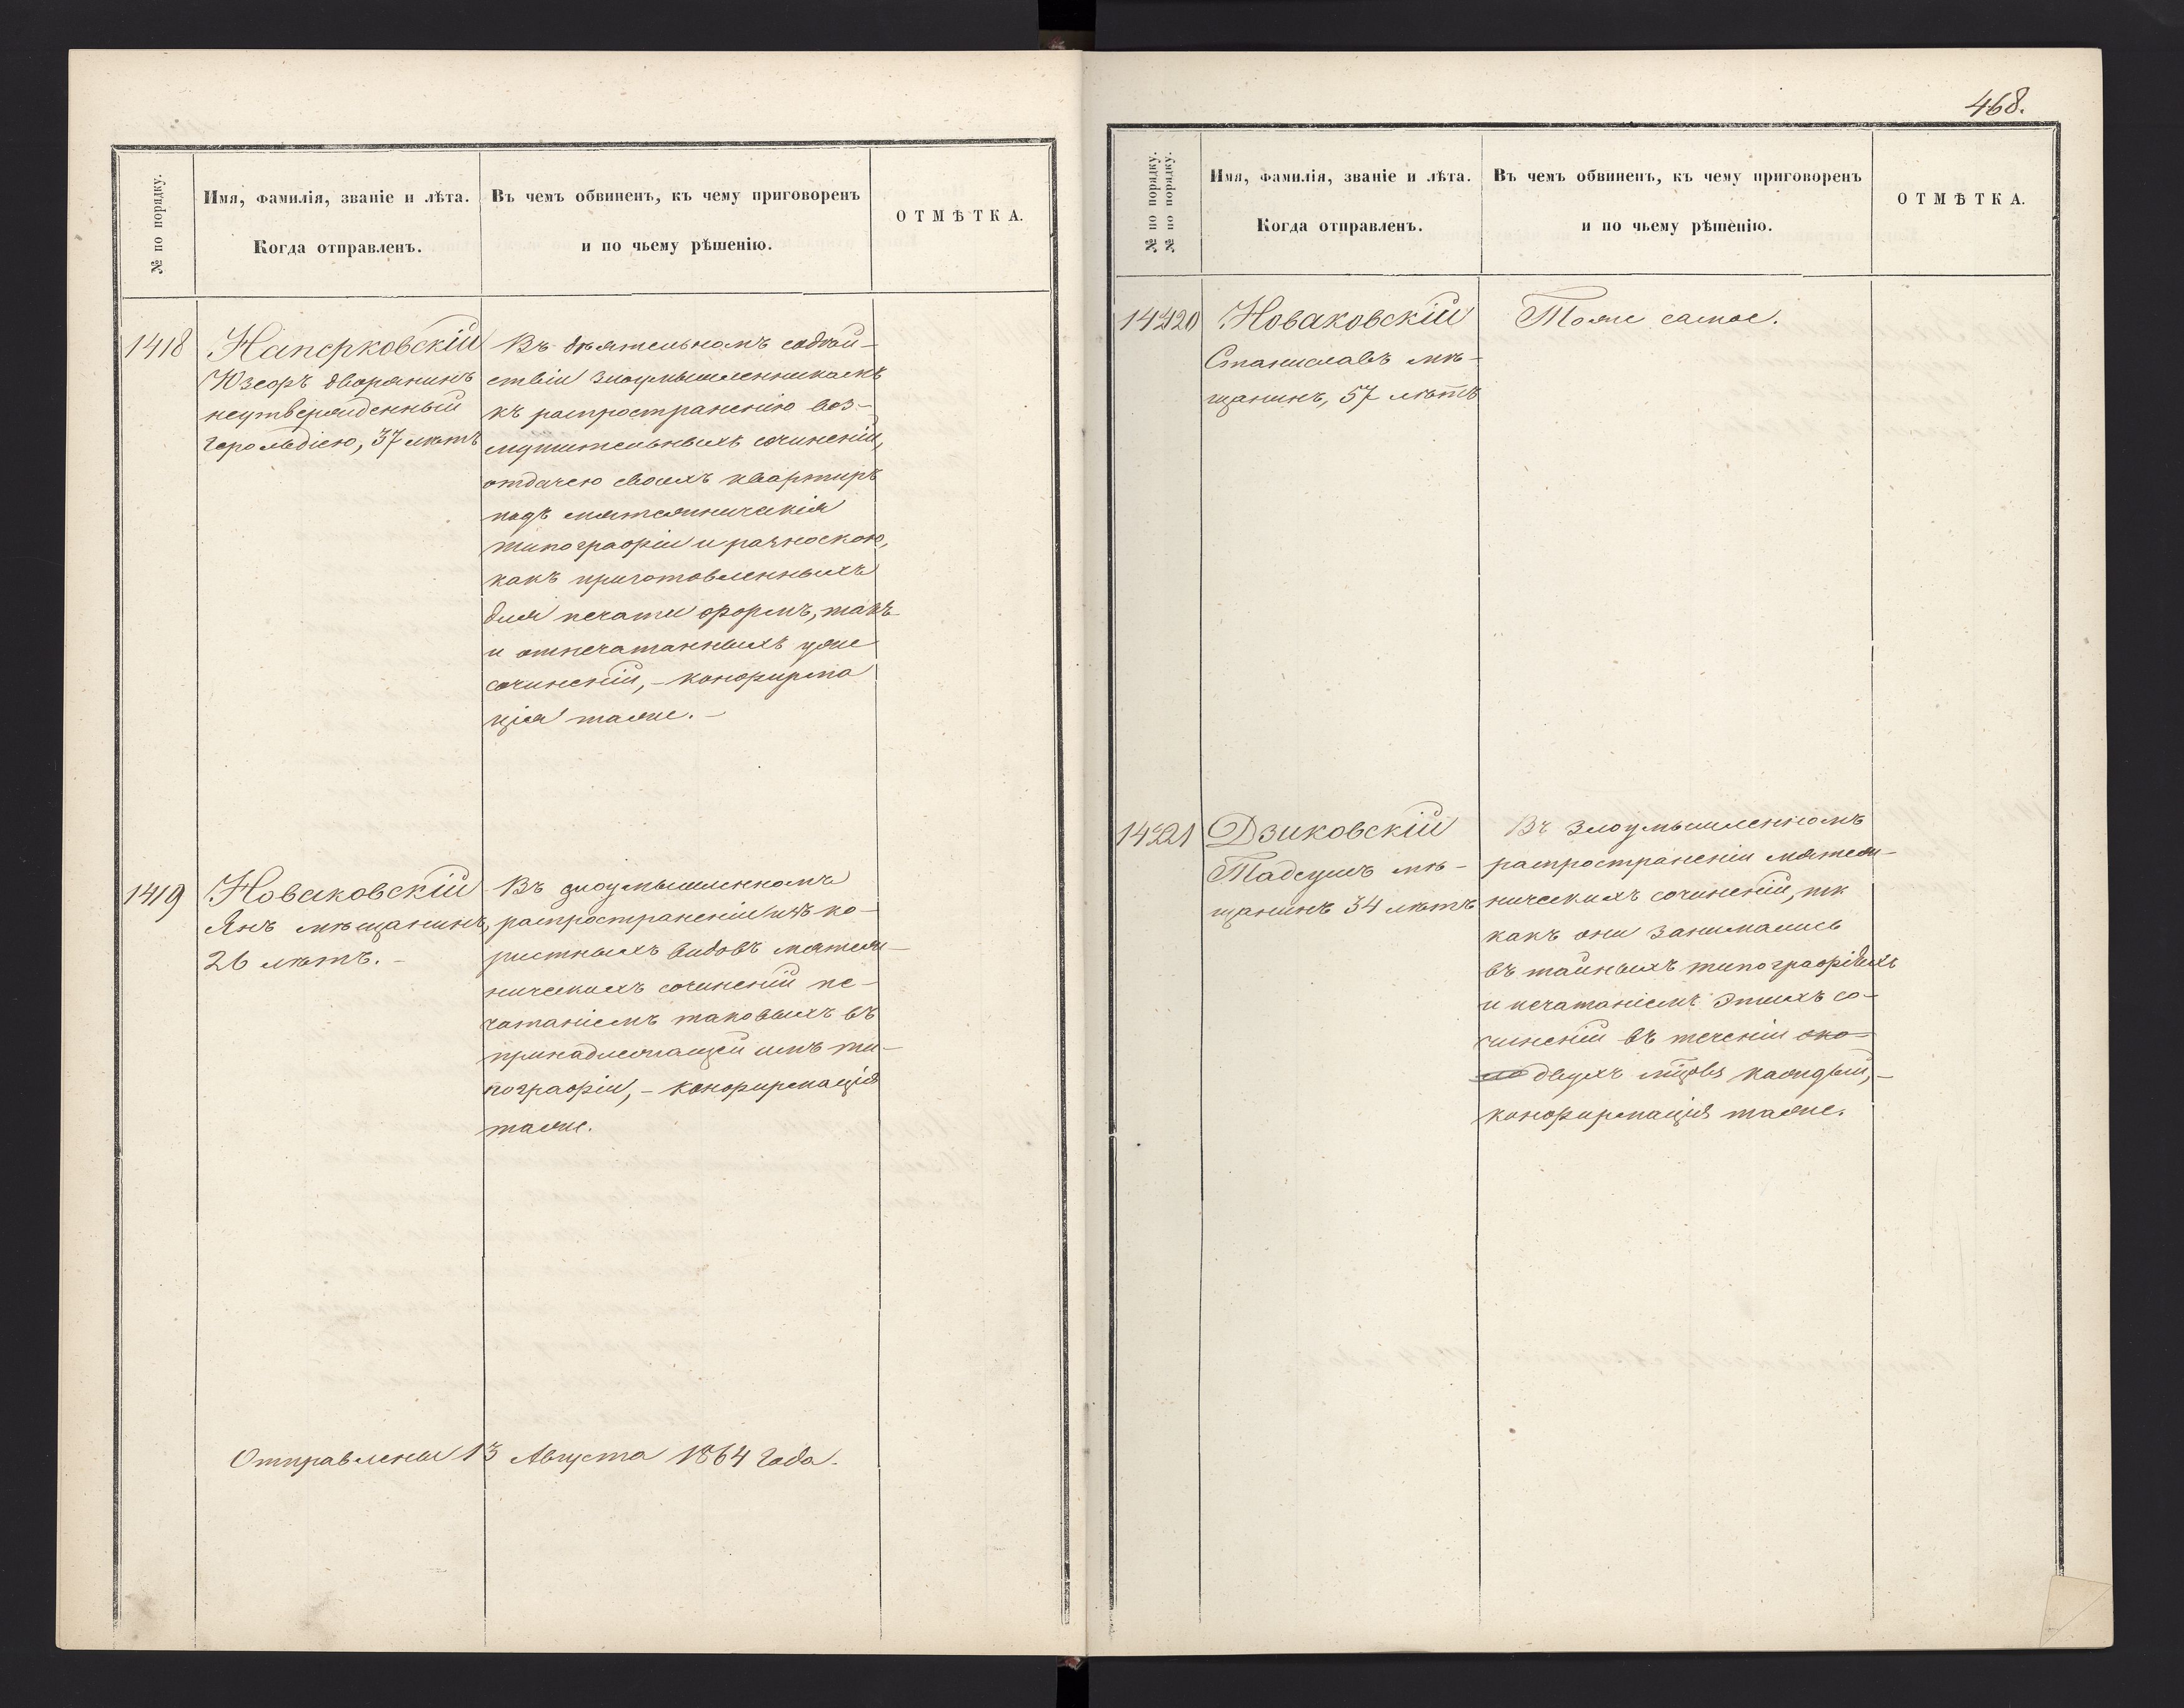 № по порядку.
Имя, фамилія, званіе и лѣта.
Когда отправленъ.
Въ чемъ обвиненъ, къ чему приговоренъ
и по чьему рѣшенію.
ОТМѢТКА.
1418
Наперковскій
Юзефъ дворянинъ
неутвержденный
Герольдіею, 37 лѣтъ
Въ дѣятельномъ содѣй-
ствіи злоумышленникамъ
къ распространенію воз-
мутительныхъ сочиненій,
отдачею своихъ квартиръ
подъ мятежническія
типографіи и разноскою,
какъ приготовленныхъ
для печати формъ, такъ
и отпечатанныхъ уже
сочиненій, - конфирма
ція таже. -
1419
Новаковскій
Янъ мѣщанинъ,
26 лѣтъ. -
Въ злоумышленномъ
распространеніи изъ ко-
рыстныхъ видовъ мятеж-
ническихъ сочиненій пе-
чатаніемъ таковыхъ въ
принадлежащей имъ ти-
пографіи, - конфирмація
таже.
Отправлены 13 Августа 1864 года.
468.
№ по порядку.
№ по порядку.
Имя, фамилія, званіе и лѣта.
Когда отправленъ.
Въ чемъ обвиненъ, къ чему приговоренъ
и по чьему рѣшенію.
ОТМѢТКА.
1420
Новаковскій
Станиславъ мѣ-
щанинъ, 57 лѣтъ
Тоже самое.
1421
Дзиковскій
Тадеушъ мѣ-
щанинъ 34 лѣтъ
Въ злоумышленномъ
распространеніи мятеж-
ническихъ сочиненій, тк
какъ они занимались
въ тайныхъ типографіяхъ
и печатаніемъ этихъ со-
чиненій въ теченіи око-
ло двухъ мцовъ каждый, -
конфирмація таже.